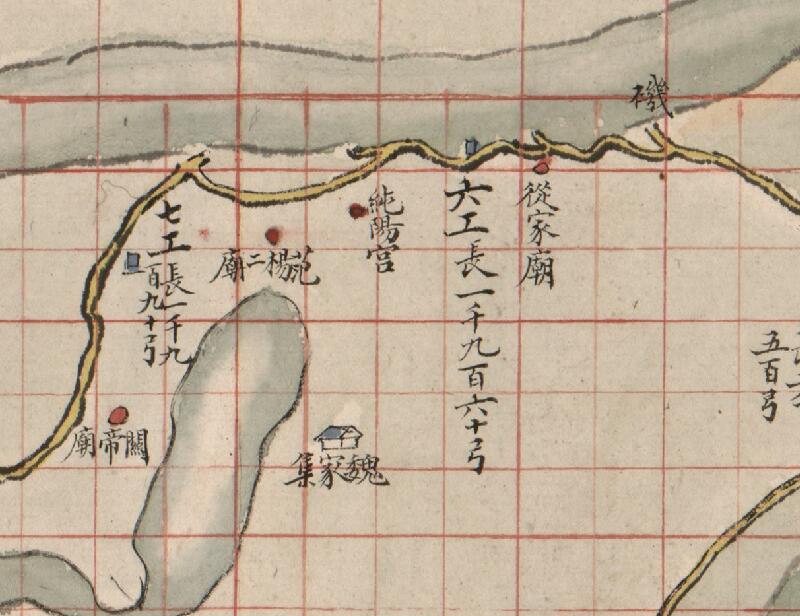 磯
從家廟
六工長一千九百六十弓
純陽宮
范楊二廟
七工長一千九
百九十弓
關帝廟
魏家集
五百弓